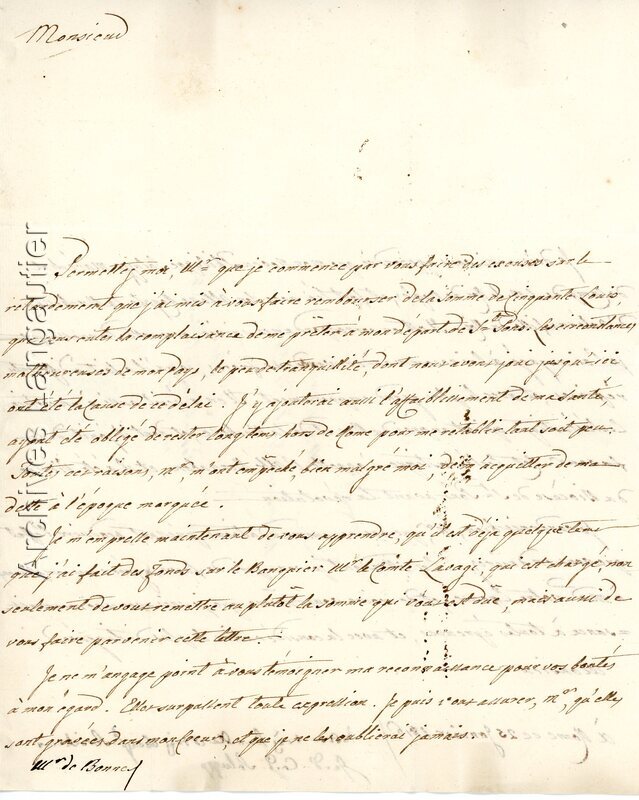 Monsieur
Permettez moi, Mr. que je commence par vous faire des excuses sur le
retardement que j'ai mis à vous faire rembourser de la somme de cinquante Louis,
que vous eutes la complaisance de me prêter à mon départ de St. Pons. Les circonstances
malheureuses de mon pays, le peu de tranquillité, dont nous avons joui jusqu'ici
ont été la cause de ce délai. J'y ajouterai aussi l'affaiblissement de ma santé,
ayant été obligé de rester longtems hors de Rome pour me retablir tant soit peu.
Toutes ces raisons, Mr. m'ont empeché, bien malgré moi, de m'acquitter de ma
dette à l'époque marquée.
Je m'empresse maintenant de vous apprendre, qu'il est déja quelque tems
que j'ai fait des fonds sur le Banquier Mr. le Comte qui est chargé non
seulement de vous remettre au plutôt la somme qui vous est düe, mais aussi de
vous faire parvenir cette lettre.
Je ne m'angage point à vous témoigner ma reconnaissance pour vos bontés
à mon égard. Elles surpassent toute expression. Je puis vous assurer, Mr. qu'elles
sont gravées dans mon coeur, et que je ne les oublierai jamais.
Mr. de Bonne
Archives Langautier